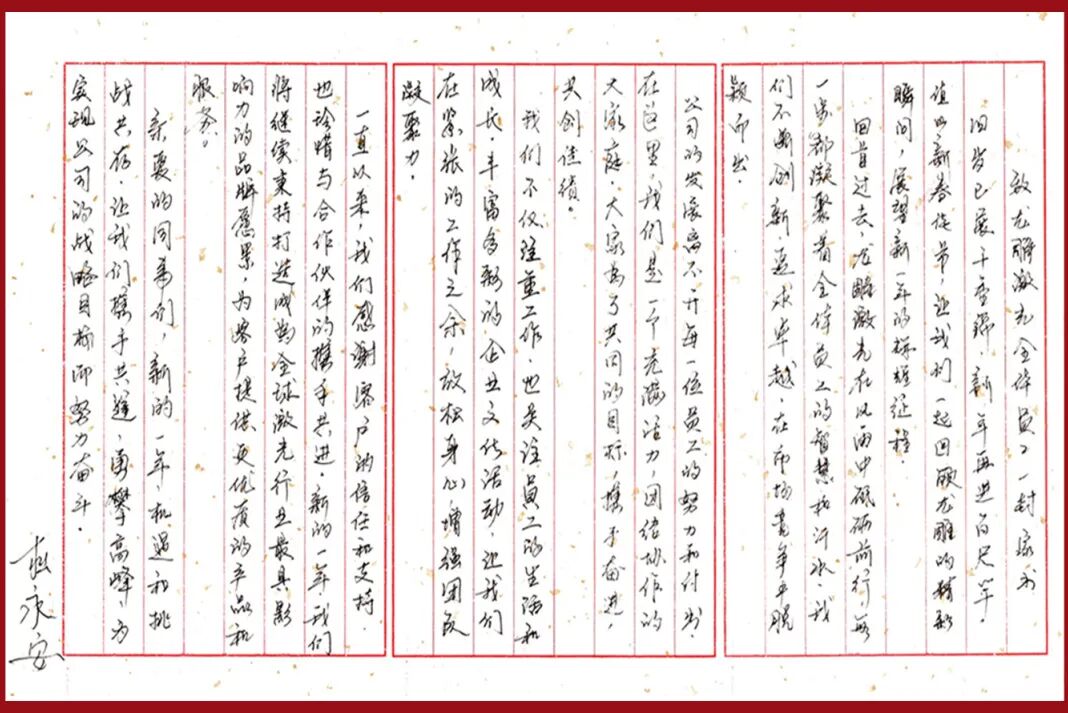 致龙雕激光全体员工一封家书
旧岁已展千重锦，新年再进百尺竿。
值此新春佳节，让我们一起回顾龙雕的精彩
瞬间，展望新一年的辉煌征程。
回首过去，龙雕激光在风雨中砥砺前行，每
一步都凝聚着全体员工的智慧和汗水，我
们不断创新，追求卓越，在市场竞争中脱
颖而出。
公司的发展离不开每一位员工的努力和付出，
在这里，我们是一个充满活力，团结协作的
大家庭，大家为了共同的目标，携手奋进，
共创佳绩。
我们不仅注重工作，也关注员工的生活和
成长，丰富多彩的企业文化活动，让我们
在紧张的工作之余，放松身心，增强团队
凝聚力。
一直以来，我们感谢客户的信任和支持，
也珍惜与合作伙伴的携手共进，新的一年我们
将继续秉持打造成为全球激光行业最具影
响力的品牌愿景，为客户提供更优质的产品和
服务。
亲爱的同事们，新的一年，机遇和挑
战共存，让我们携手共进，勇攀高峰，为
实现公司的战略目标而努力奋斗。
永安